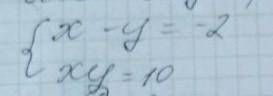 x - y = -2
xy = 10